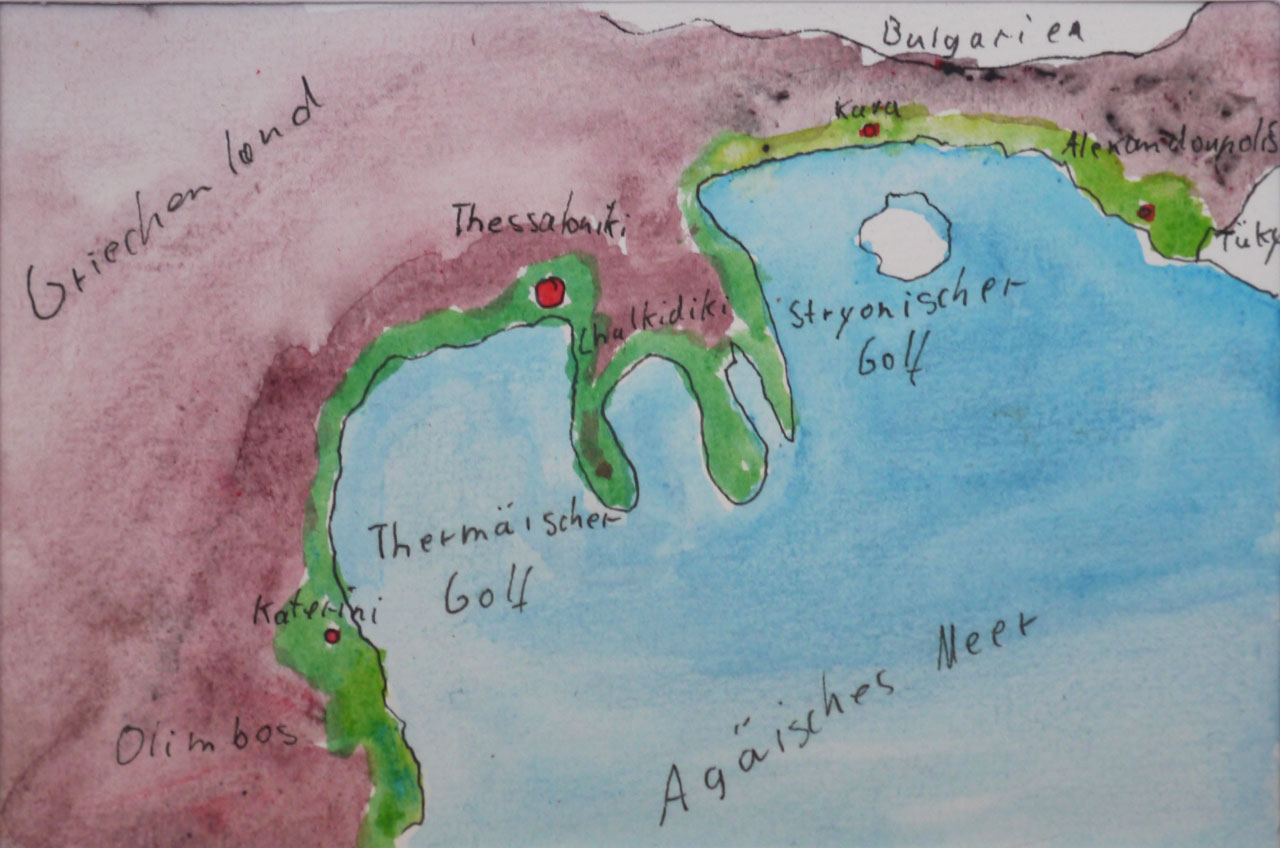 Bulgarien
Griechenland
Kava
Alexandoupolis
Thessaloniki
Tüky
Chalkidiki
Stryonischer
Golf
Thermäischer
Golf
Katerini
Agäisches Meer
Olimbos